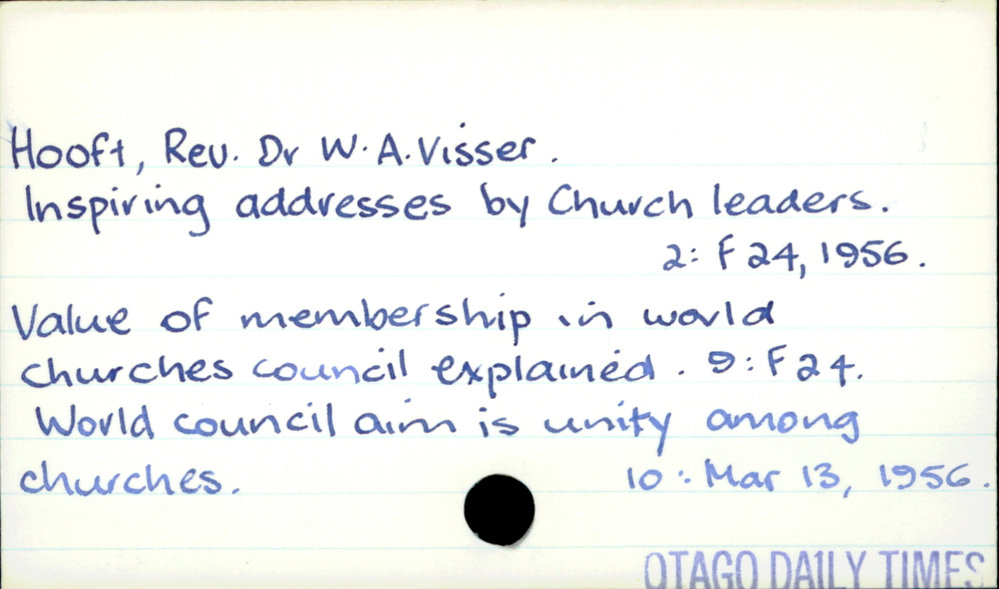 Hooft, Rev. Dr W. A. Visser.
Inspiring addresses by Church leaders.
2: F 24, 1956.
Value of membership in world
churches council explained. 9: F 24.
World council aim is unity among
churches. 10: Mar 13, 1956.
OTAGO DAILY TIMES